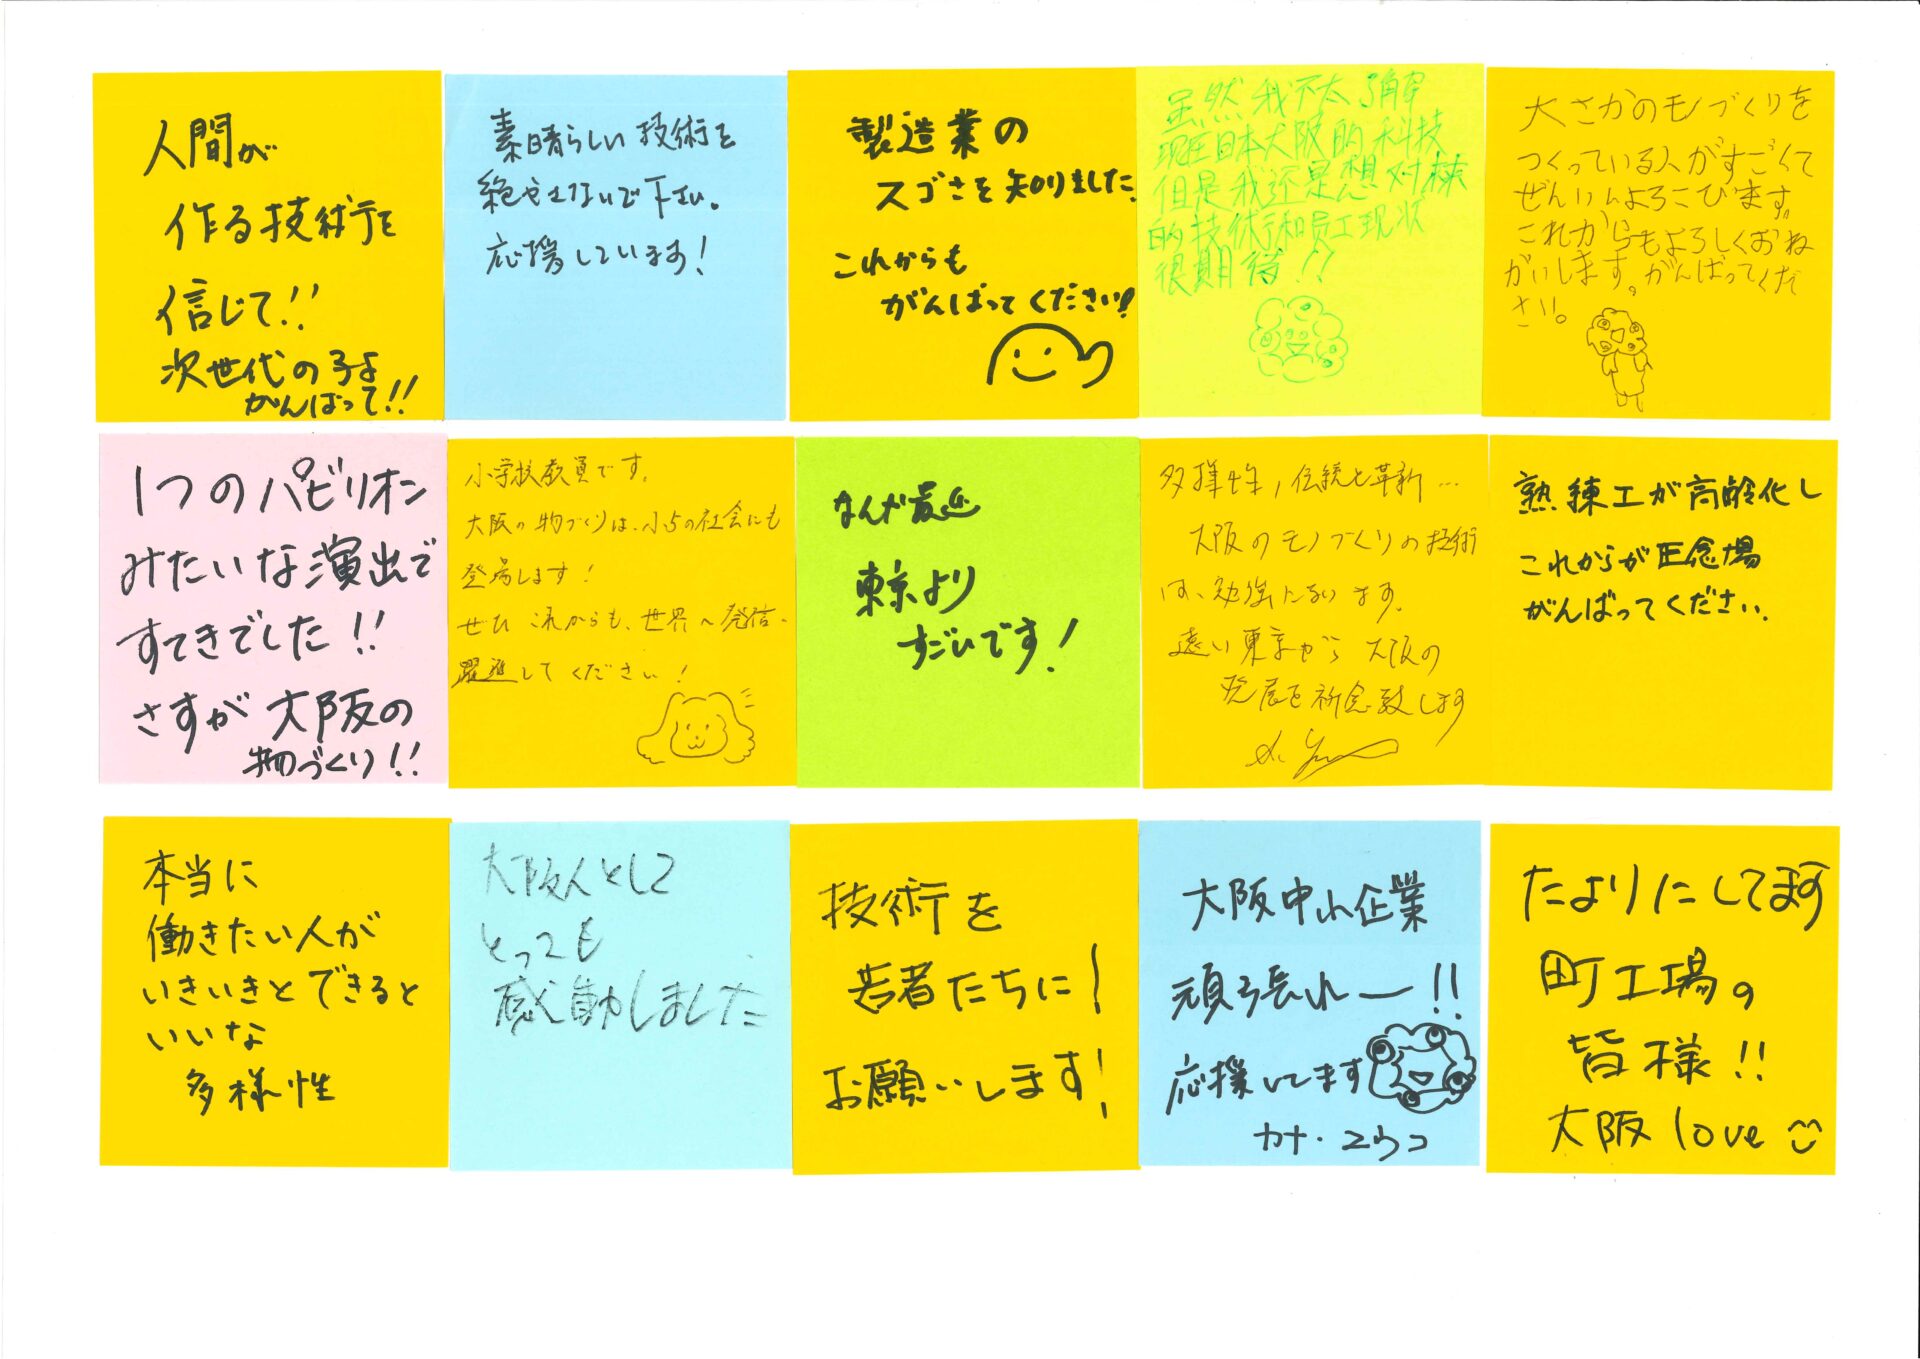 人間が
作る技術を
信じて!!
次世代の子よ
がんばって!!
素晴らしい技術を
絶やさないで下さい。
応援しています!
製造業の
スゴさを知りました。
これからも
がんばってください!
虽然我不太了解
现在日本大阪的科技
但是我还是想对
的技术和
很期待!!
大さかのモノづくりを
つくっている人がすごくて
ぜんいんよろこびます。
これからもよろしくおね
がいします。がんばってくだ
さい。
1つのパビリオン
みたいな演出で
すてきでした!!
さすが大阪の
物づくり!!
小学校教員です。
大阪の物づくりは、小5の社会にも
登場します!
ぜひこれからも、世界へ発信、
躍進してください!
なんか最近
東京より
すごいです!
多様性,伝統と革新...
大阪のモノづくりの技術
は、勉強になります。
遠い東京から大阪の
発展を祈念致します
熟練工が高齢化し
これからが正念場
がんばってください.
本当に
働きたい人が
いきいきとできると
いいな
多様性
大阪人として
とっても
感動しました
技術を
若者たちに!
お願いします!
大阪中小企業
頑張れー!!
応援してます
カナ・ユウコ
たよりにしてます
町工場の
皆様!!
大阪love